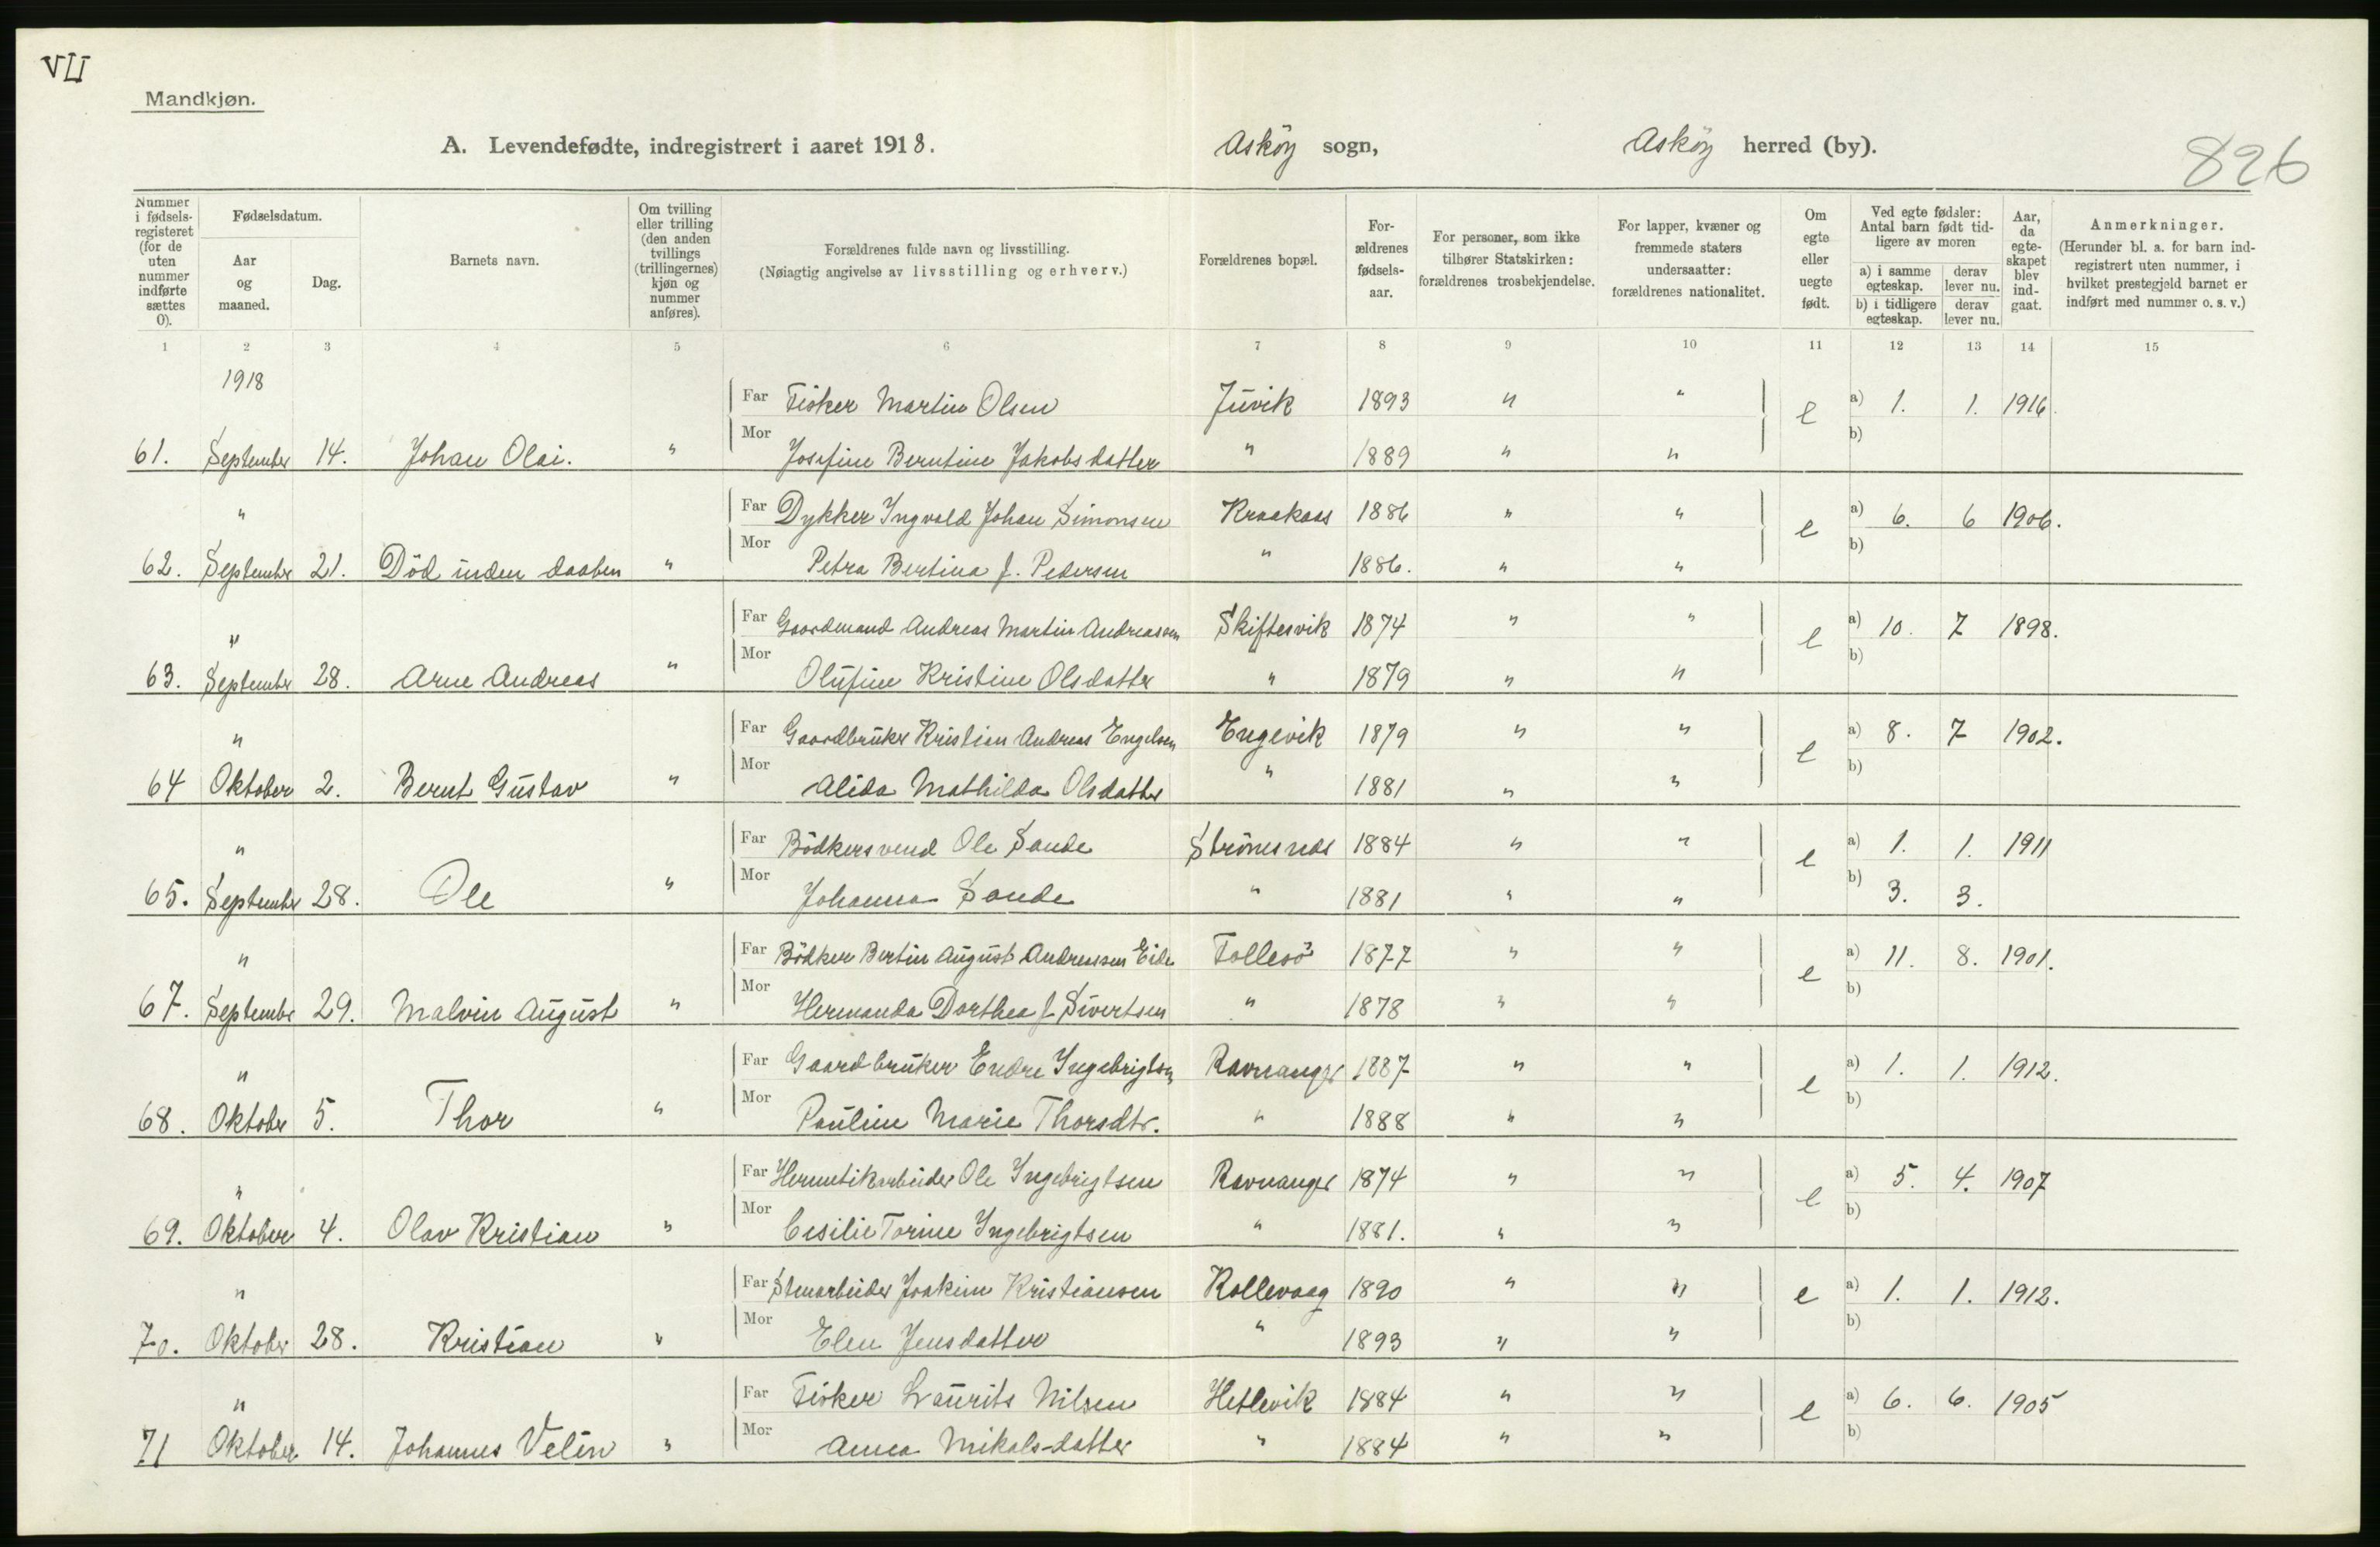 VII
Mandkjøn.
A. Levendefødte, indregistrert i aaret 1918.
Asköy sogn, Asköy herred (by).
826
Nummer i fødsels-registeret (for de uten nummer indførte sættes 0).
Fødselsdatum.
Aar og maaned.
Dag.
Barnets navn.
Om tvilling eller trilling (den anden tvillings (trillingernes) kjøn og nummer anføres).
Forældrenes fulde navn og livsstilling.
(Nøiagtig angivelse av livsstilling og erhverv.)
Forældrenes bopæl.
For-ældrenes fødsels-aar.
For personer, som ikke tilhører Statskirken: forældrenes trosbekjendelse.
For lapper, kvæner og fremmede staters undersaatter: forældrenes nationalitet.
Om egte eller uegte født.
Ved egte fødsler: Antal barn født tid-ligere av moren
a) i samme egteskap. derav lever nu.
b) i tidligere egteskap. derav lever nu.
Aar, da egte-skapet blev ind-gaat.
Anmerkninger.
(Herunder bl. a. for barn ind-registrert uten nummer, i hvilket prestegjeld barnet er indført med nummer o. s. v.)
1 2 3 4 5 6 7 8 9 10 11 12 13 14 15
1918
Far Fisker Martin Olsen Juvik 1893 " " e a) 1. 1. 1916.
61. September 14. Johan Olai. " Mor Josefine Berntine Jakobsdatter " 1889 " " b)
" Far Dykker Ingvald Johan Simonsen Kraakaas 1886 " " e a) 6. 6 1906.
62. September 21. Död uden daaben " Mor Petra Bertina f. Pedersen " 1886. " " b)
" Far Gaardmand Andreas Martin Andreassen Skiftesvik 1874 " " e a) 10. 7 1898.
63. September 28. Arne Andreas " Mor Olufine Kristine Olsdatter " 1879 " " b)
" Far Gaardbruker Kristian Andreas Engelsen Engevik 1879 " " e a) 8. 7 1902.
64 Oktober 2. Bernt Gustav " Mor Alida Mathilda Olsdatter " 1881 " " b)
" Far Bödkersvend Ole Sande Strömsnes 1884 " " e a) 1. 1. 1911
65. September 28. Ole " Mor Johanna Sande " 1881 " " b) 3. 3.
" Far Bödker Bertin August Andreassen Eide Follesö 1877 " " e a) 11. 8. 1901.
67. September 29. Malvin August " Mor Hermanda Dorthea f. Sivertsen " 1878 " " b)
" Far Gaardbruker Endre Ingebrigtsen Ravnanger 1887 " " e a) 1. 1. 1912.
68. Oktober 5. Thor " Mor Pauline Marie Thorsdtr. " 1888 " " b)
" Far Hermetikarbeider Ole Ingebrigtsen Ravnanger 1874 " " e a) 5. 4. 1907
69. Oktober 4. Olav Kristian " Mor Cesilie Torine Ingebrigtsen " 1881. " " b)
" Far Stenarbeider Joakim Kristiansen Kollevaag 1890 " " e a) 1. 1. 1912.
70. Oktober 28. Kristian " Mor Elen Jensdatter " 1893 " " b)
" Far Fisker Laurits Nilsen Hetlevik 1884 " " e a) 6. 6. 1905
71 Oktober 14. Johannes Velin " Mor Anna Mikals-datter " 1884 " " b)